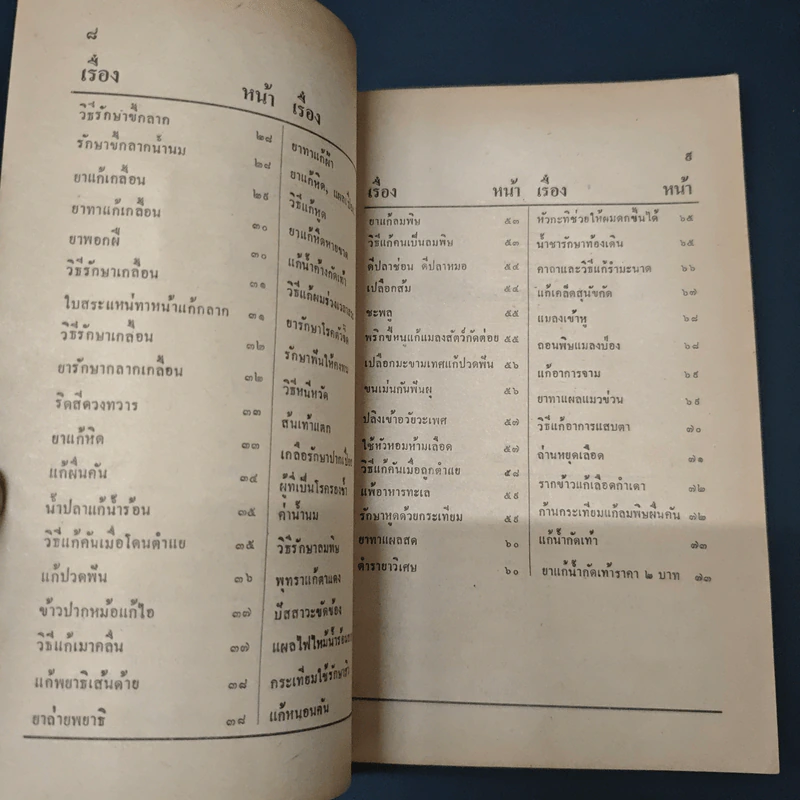 ๘
เรื่อง หน้า
วิธีรักษาขี้กลาก ๒๘
รักษาขี้กลากน้ำนม ๒๘
ยาแก้เกลื้อน ๒๙
ยาทาแก้เกลื้อน ๓๐
ยาพอกฝี ๓๐
วิธีรักษาเกลื้อน ๓๑
ใบสระแหน่ทาหน้าแก้กลาก ๓๑
วิธีรักษาเกลื้อน ๓๒
ยารักษากลากเกลื้อน ๓๒
ริดสีดวงทวาร ๓๓
ยาแก้หิด ๓๓
แก้ผื่นคัน ๓๔
น้ำปลาแก้น้ำร้อน ๓๕
วิธีแก้คันเมื่อโดนตำแย ๓๕
แก้ปวดฟัน ๓๖
ข้าวปากหม้อแก้ไอ ๓๗
วิธีแก้เมาคลื่น ๓๗
แก้พยาธิเส้นด้าย ๓๘
ยาถ่ายพยาธิ ๓๘
เรื่อง
ยาทาแก้ฝ้า
ยาแก้หิด,
วิธีแก้หูด
ยาแก้หืดหายขาด
แก้น้ำค้างกัดเท้า
วิธีแก้ผมร่วง
ยารักษาโรคหัว
รักษาฟันให้
วิธีหนีหวัด
ส้นเท้าแตก
เกลือรักษาปาก
ผู้ที่เป็นโรค
ค่าน้ำนม
วิธีรักษาลมพิษ
พุทราแก้ตาแดง
ปัสสาวะขัดข้อง
แผลไฟไหม้น้ำร้อน
กระเทียมใช้รักษา
แก้หนอนคัน
๙
เรื่อง หน้า
ยาแก้ลมพิษ ๕๓
วิธีแก้คนเป็นลมพิษ ๕๓
ดีปลาช่อน ดีปลาหมอ ๕๔
เปลือกส้ม ๕๔
ชะพลู ๕๕
พริกขี้หนูแก้แมลงสัตว์กัดต่อย ๕๕
เปลือกมะขามเทศแก้ปวดฟัน ๕๖
ขนเม่นกันฟันผุ ๕๖
ปลิงเข้าอวัยวะเพศ ๕๗
ใช้หัวหอมห้ามเลือด ๕๗
วิธีแก้คันเมื่อถูกตำแย ๕๘
แพ้อาหารทะเล ๕๙
รักษาหูดด้วยกระเทียม ๕๙
ยาทาแผลสด ๖๐
ตำรายาวิเศษ ๖๐
เรื่อง หน้า
หัวกะทิช่วยให้ผมดกขึ้นได้ ๖๕
น้ำชารักษาท้องเดิน ๖๕
คาถาและวิธีแก้รำมะนาด ๖๖
แก้เคล็ดสุนัขกัด ๖๗
แมลงเข้าหู ๖๘
ถอนพิษแมลงป่อง ๖๘
แก้อาการจาม ๖๙
ยาทาแผลแมวข่วน ๖๙
วิธีแก้อาการแสบตา ๗๐
ถ่านหยุดเลือด ๗๑
รากข้าวแก้เลือดกำเดา ๗๒
ก้านกระเทียมแก้ลมพิษผื่นคัน ๗๒
แก้น้ำกัดเท้า ๗๓
ยาแก้น้ำกัดเท้าราคา ๒ บาท ๗๓